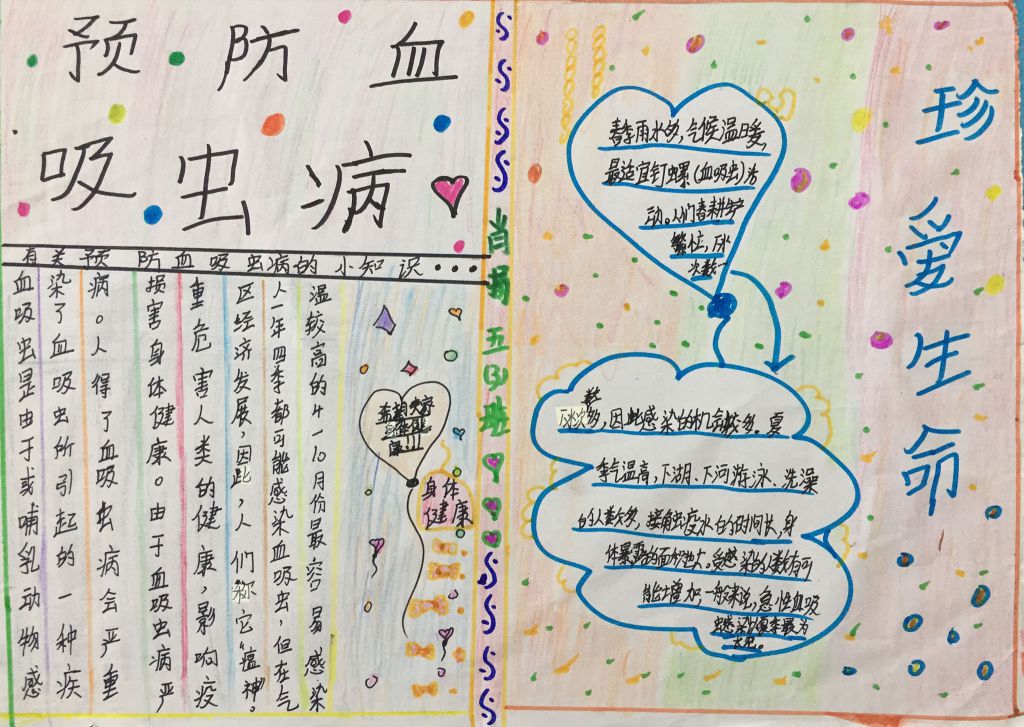 预防血
吸虫病
有关预防血吸虫病的小知识...
血吸虫是由于或哺乳动物感
染了血吸虫所引起的一种疾
病。人得了血吸虫病会严重
损害身体健康。由于血吸虫病严
重危害人类的健康，影响疫
区经济发展，因此，人们称它“瘟神”。
人一年四季都可能感染血吸虫，但在气
温较高的4一10月份最容易感染
康!!!
身体
健康
肖
五(3)班
春季雨水多，气候温日爰，
最适宜钉螺（血吸虫）活
动。人们春耕生产
繁忙，下水
次数一
较
下水次多，因此感染的机会较多。夏
季气温高，下湖、下河游泳、洗澡
的人数多，接触虫疫水白的时间长，身
体暴露的面积也大。受感染的人数有可
能增加一般来说，急性血吸
虫感染以夏季最为
大见。
珍爱生命